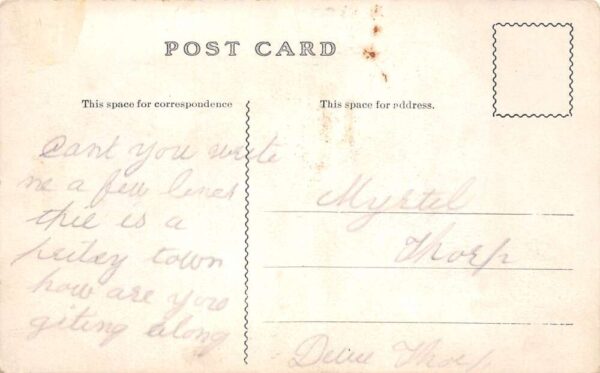 POST CARD
This space for correspondence
This space for address.
cant you write
me a few lines
this is a
pritey town
how are you
giting along
Myrtel
Thorp
Thorp